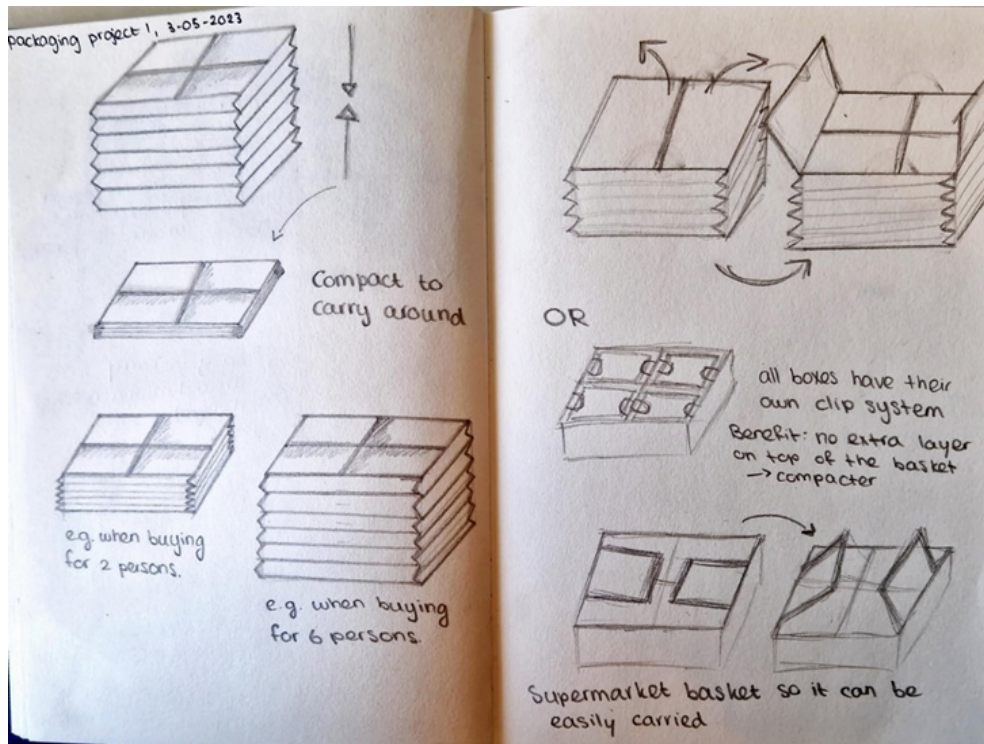 packaging project 1, 3-05-2023
Compact to
carry around
e.g. when buying
for 2 persons.
e.g. when buying
for 6 persons.
OR
all boxes have their
own clip system
Benefit: no extra layer
on top of the basket
→ compacter
Supermarket basket so it can be
easily carried